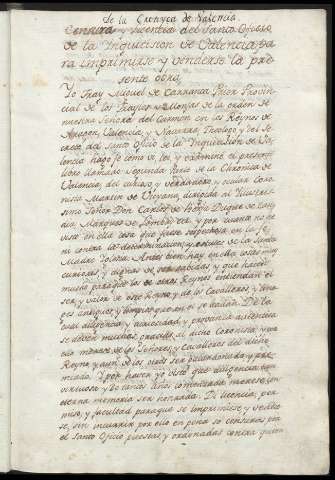 de la Cronyca de Valencia
Censura y licencia del Santo Oficio
de la Inquicision de Valencia, pa
ra imprimirse y venderse la pre
sente obra
Yo Fray Miquel de Carranca Prior Provin
cial de los Frayles y Monjas de la orden de
nuestra Señora del Carmen en los Reynos de
Aragon, Valencia, y Navarra, Theologo y del Se
creto del Santo Oficio de la Inquisicion de Va
lencia hago fe como e lei, y examine el presente
libro llamado segunda parte de la Chronica de
Valencia del curioso y verdadero Coro
nista Martin de Viciana, dirigida al Illustres
simo Señor Don Carlos de Borja Duque de Gan
dia, Marques de Lombay etc. y por quanto no he
visto en ella cosa que fuese sospechosa en la fe,
ni contra la determinacion de la Santa
Madre Iglesia. Antes bien hay en ella cosas muy
curiosas, y dignas de ser sabidas y que hacen
mucho para que los de otros Reynos entiendan el
ser y valor de este Reyno y de los Cavalleros, y lina
ges antiguos, y limpios que en el se hallan. De la
qual diligencia, y curiosidad, y provancia autentica
se deven muchas gracias al dicho Coronista, y ma
yores de los Señores, y Cavalleros del dicho
Reyno y aun de los otros ser galardonado y pre
miado. Y por haver yo visto que diligencia tan
virtuosa y de tantos años continuada merece, con
eterna memoria ser honrada. Di licencia, per
miso, y facultad para que se imprimiese y vendie
se, sin incurrir por ello en pena so censuras por
el Santo Oficio puestas, y ordenadas contra quien